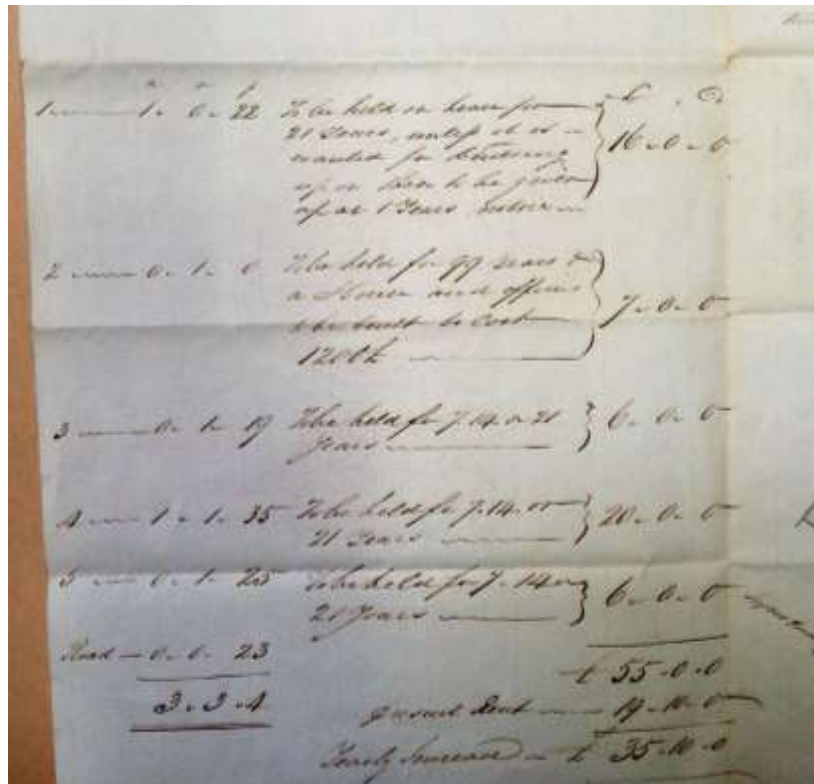 a r p
1 1. 0. 22 To be held on Lease for £
21 Years, unless it is 16. 0. 0
wanted for Building
upon then to be given
up at 1 Years notice
2 0. 1. 0 To be held for 99 Years &
a House and offices
to be built to Cost 7. 0. 0
1200£
3 0. 1. 19 To be held for 7. 14. or 21 6. 0. 0
Years
4 1. 1. 35 To be held for 7. 14. or 20. 0. 0
21 Years
5 0. 1. 25 To be held for 7. 14 or 6. 0. 0
21 Years
Road 0. 0. 23
£ 55. 0. 0
3. 3. 4
present Rent 19. 10. 0
Yearly Increase £ 35. 10. 0